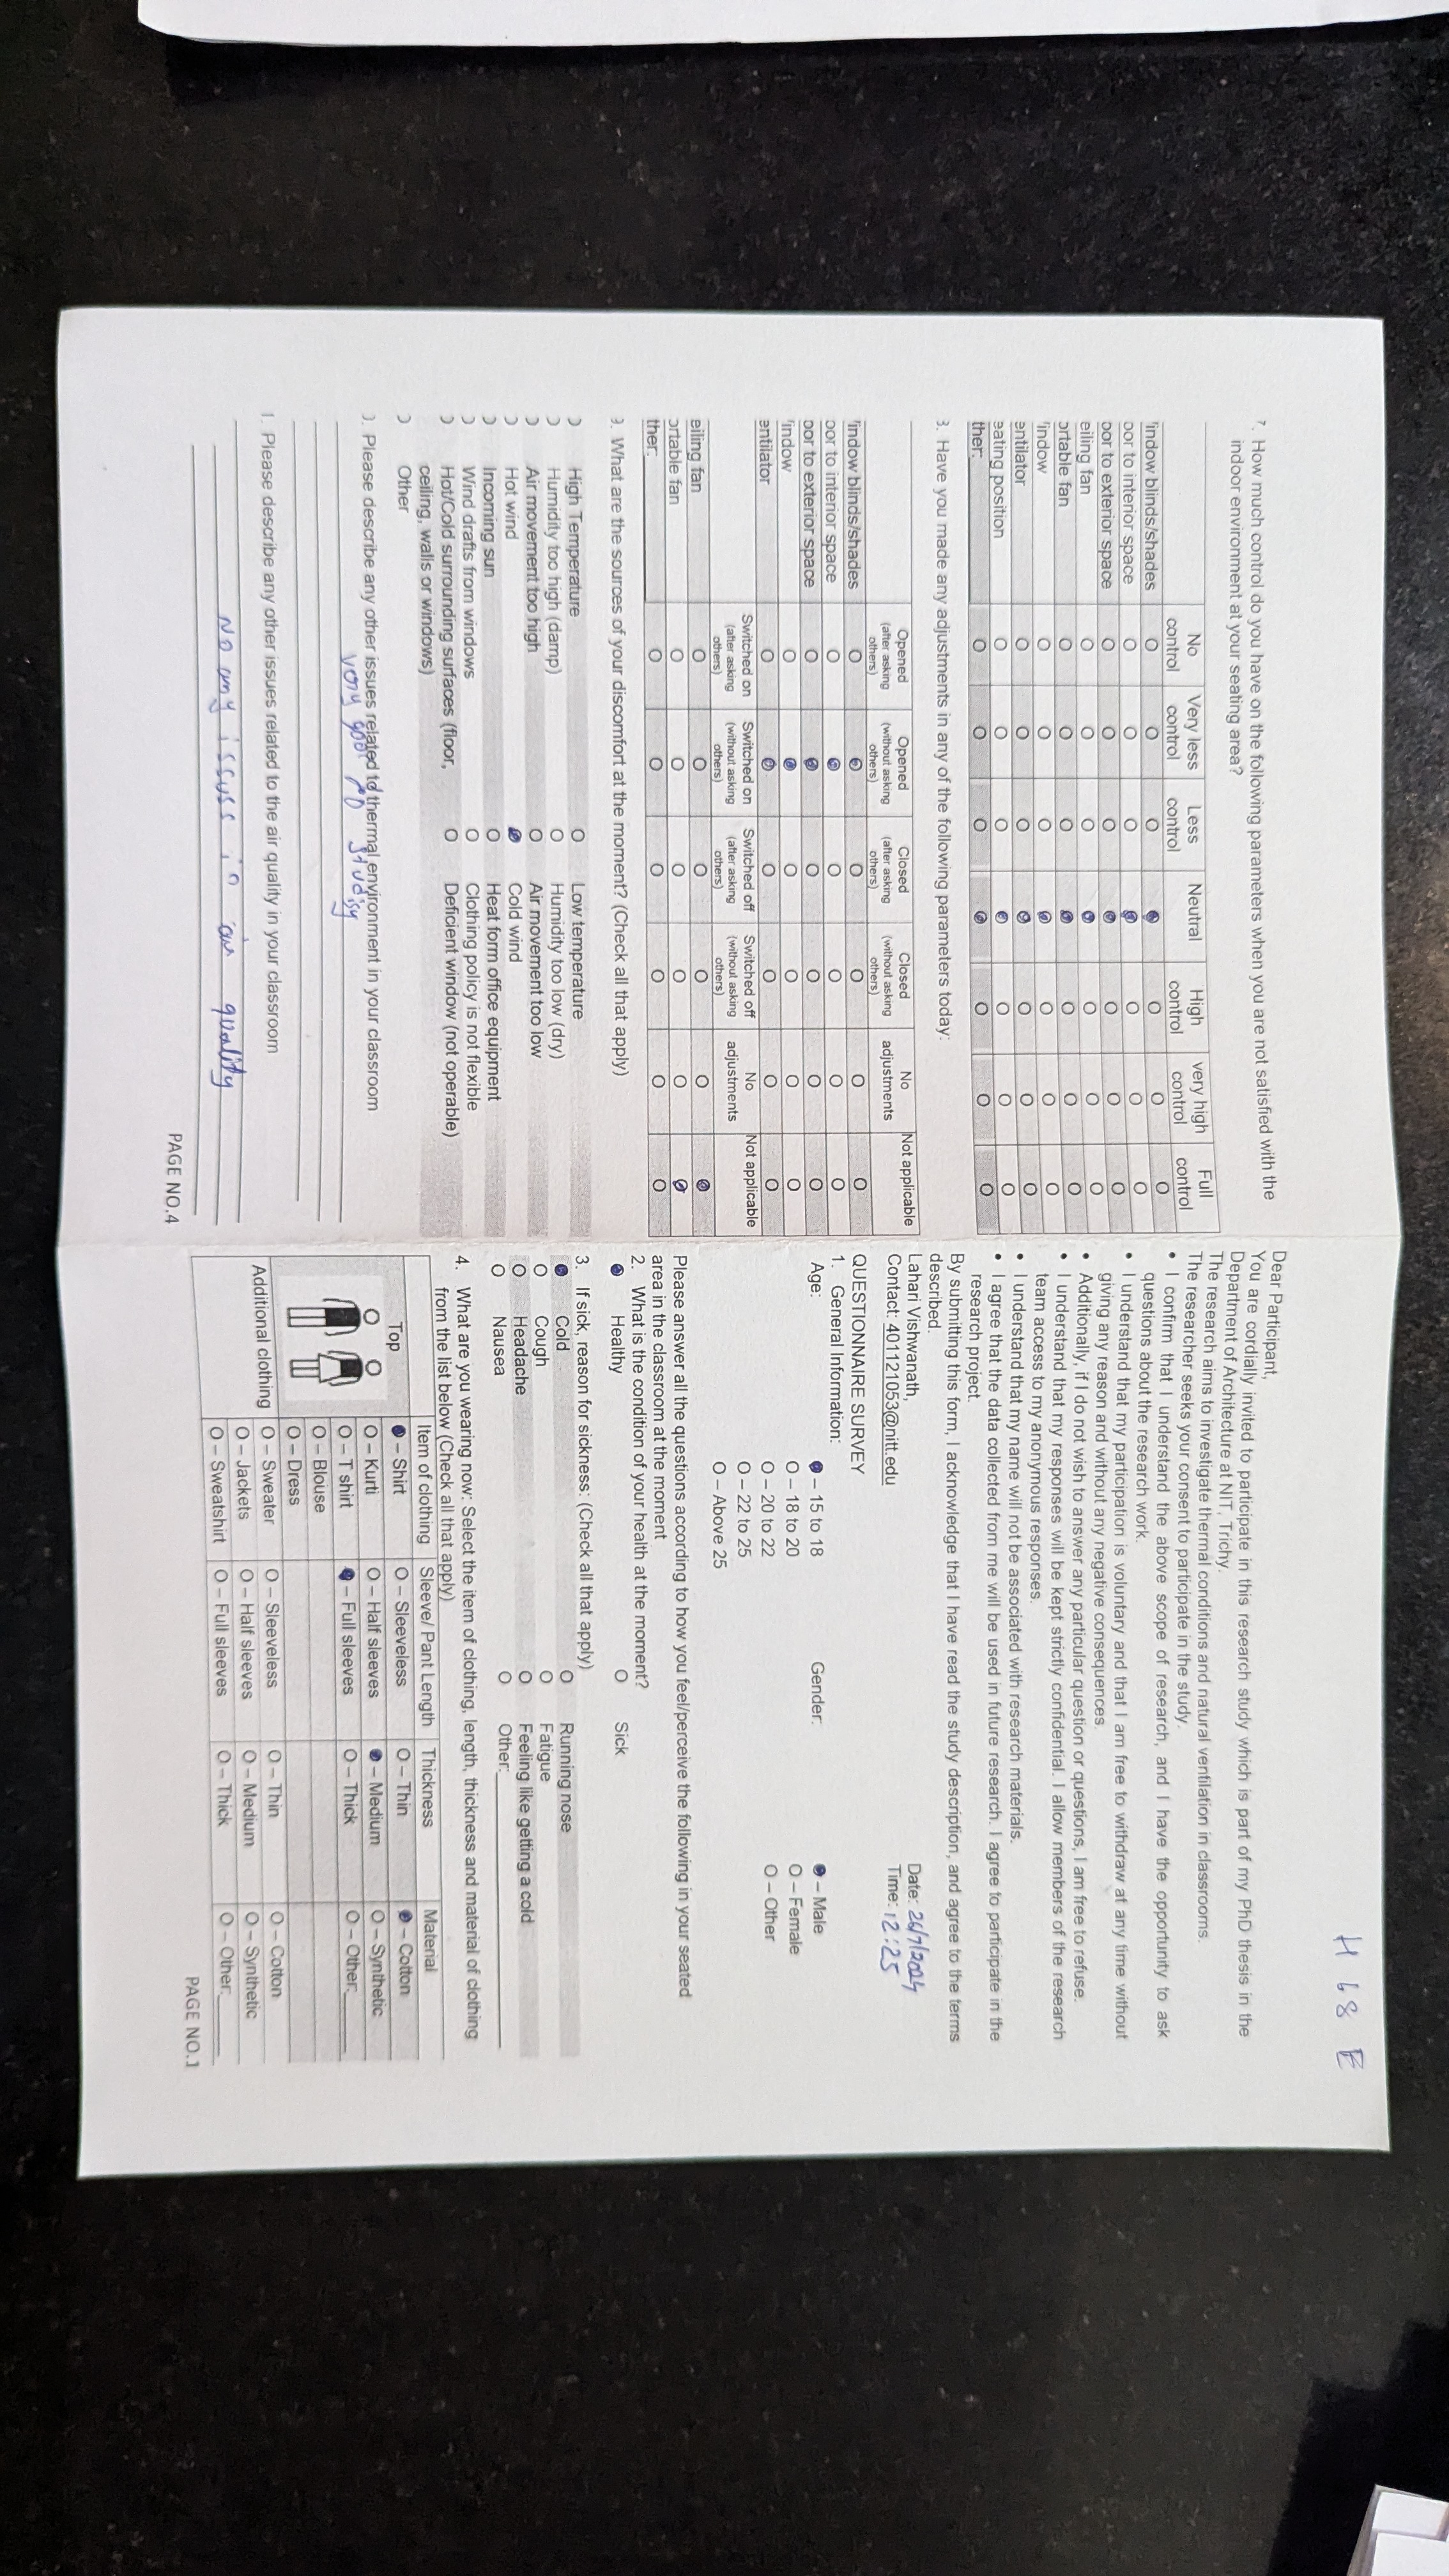 7. How much control do you have on the following parameters when you are not satisfied with the
indoor environment at your seating area?
No control Very less control Less control Neutral High control very high control Full control
indow blinds/shades O O O O O O O
oor to interior space O O O O O O O
oor to exterior space O O O O O O O
eiling fan O O O O O O O
ortable fan O O O O O O O
indow O O O O O O O
entilator O O O O O O O
eating position O O O O O O O
ther: O O O O O O O
8. Have you made any adjustments in any of the following parameters today:
Opened (after asking others) Opened (without asking others) Closed (after asking others) Closed (without asking others) No adjustments Not applicable
indow blinds/shades O O O O O O
oor to interior space O O O O O O
oor to exterior space O O O O O O
indow O O O O O O
entilator O O O O O O
Switched on (after asking others) Switched on (without asking others) Switched off (after asking others) Switched off (without asking others) No adjustments Not applicable
eiling fan O O O O O O
ortable fan O O O O O O
ther: O O O O O O
9. What are the sources of your discomfort at the moment? (Check all that apply)
High Temperature O Low temperature
Humidity too high (damp) O Humidity too low (dry)
Air movement too high O Air movement too low
Hot wind O Cold wind
Incoming sun O Heat form office equipment
Wind drafts from windows O Clothing policy is not flexible
Hot/Cold surrounding surfaces (floor, O Deficient window (not operable)
ceiling, walls or windows)
Other
). Please describe any other issues related to thermal environment in your classroom
very
1. Please describe any other issues related to the air quality in your classroom
No any issuss in air quality
PAGE NO.4
H 68 E
Dear Participant,
You are cordially invited to participate in this research study which is part of my PhD thesis in the
Department of Architecture at NIT, Trichy.
The research aims to investigate thermal conditions and natural ventilation in classrooms.
The researcher seeks your consent to participate in the study.
• I confirm that I understand the above scope of research, and I have the opportunity to ask
questions about the research work.
• I understand that my participation is voluntary and that I am free to withdraw at any time without
giving any reason and without any negative consequences.
• Additionally, if I do not wish to answer any particular question or questions, I am free to refuse.
• I understand that my responses will be kept strictly confidential. I allow members of the research
team access to my anonymous responses.
• I understand that my name will not be associated with research materials.
• I agree that the data collected from me will be used in future research. I agree to participate in the
research project.
By submitting this form, I acknowledge that I have read the study description, and agree to the terms
described.
Lahari Vishwanath, Date: 26/7/2024
Contact: 401121053@nitt.edu Time: 12:25
QUESTIONNAIRE SURVEY
1. General Information:
Age: O – 15 to 18 Gender: O – Male
O – 18 to 20 O – Female
O – 20 to 22 O – Other
O – 22 to 25
O – Above 25
Please answer all the questions according to how you feel/perceive the following in your seated
area in the classroom at the moment
2. What is the condition of your health at the moment?
O Healthy O Sick
3. If sick, reason for sickness: (Check all that apply)
O Cold O Running nose
O Cough O Fatigue
O Headache O Feeling like getting a cold
O Nausea O Other:
4. What are you wearing now: Select the item of clothing, length, thickness and material of clothing
from the list below (Check all that apply)
Item of clothing Sleeve/ Pant Length Thickness Material
Top O – Shirt O – Sleeveless O – Thin O – Cotton
O – Kurti O – Half sleeves O – Medium O – Synthetic
O – T shirt O – Full sleeves O – Thick O – Other:
O – Blouse
O – Dress
Additional clothing O – Sweater O – Sleeveless O – Thin O – Cotton
O – Jackets O – Half sleeves O – Medium O – Synthetic
O – Sweatshirt O – Full sleeves O – Thick O – Other:
PAGE NO.1